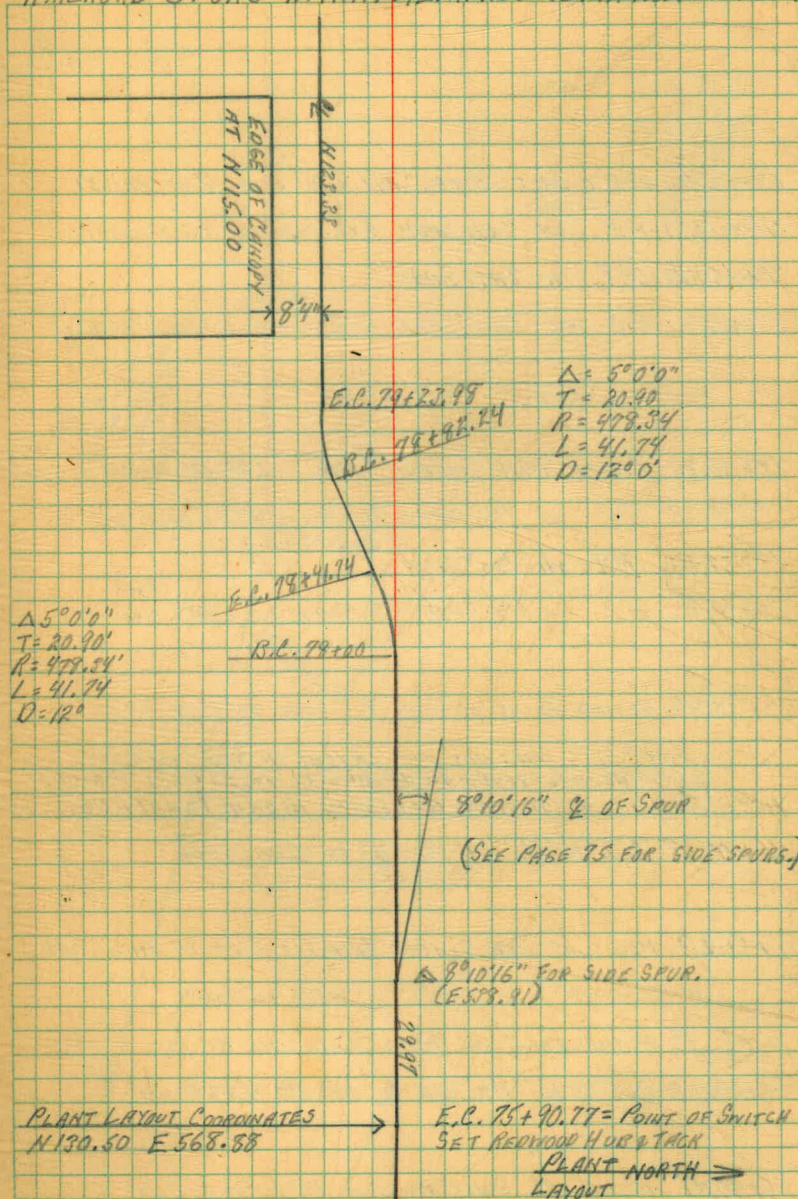 EDGE OF CANOPY
AT N115.00
℄ N123.33
8'4"
E.C. 79+23.98
B.C. 78+82.24
Δ = 5°0'0"
T = 20.90
R = 478.34
L = 41.74
D = 12°0'
E.C. 78+41.74
B.C. 78+00
Δ 5°0'0"
T = 20.90'
R = 478.34'
L = 41.74
D = 12°
8°10'16" ℄ OF SPUR
(SEE PAGE 75 FOR SIDE SPURS.)
Δ 8°10'16" FOR SIDE SPUR.
29.97
PLANT LAYOUT COORDINATES
N130.50 E568.88
E.C. 75+90.77 = POINT OF SWITCH
SET REDWOOD HUB & TACK
PLANT NORTH
LAYOUT